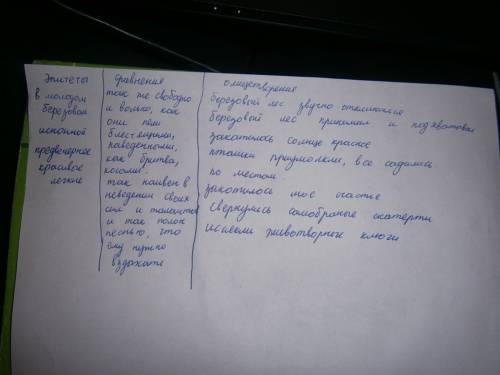 эпитеты
в молодом
березовом
исконной
предвечернее
красивое
легкие
сравнения
так же свободно
и вольно, как
они пели
блестящими,
наведенными,
как бритва,
косами.
так наивен в
неведении своих
сил и талантов
и так полон
песнью, что
ему нужно
вздыхать
олицетворения
березовый лес звучно откликался
березовый лес принимал и подхватывал
закаталось солнце красное
пташки приумолкли, все садились
по местам
закотилось мое счастие
свернулись самобраные скатерти
иссякли животворные ключи